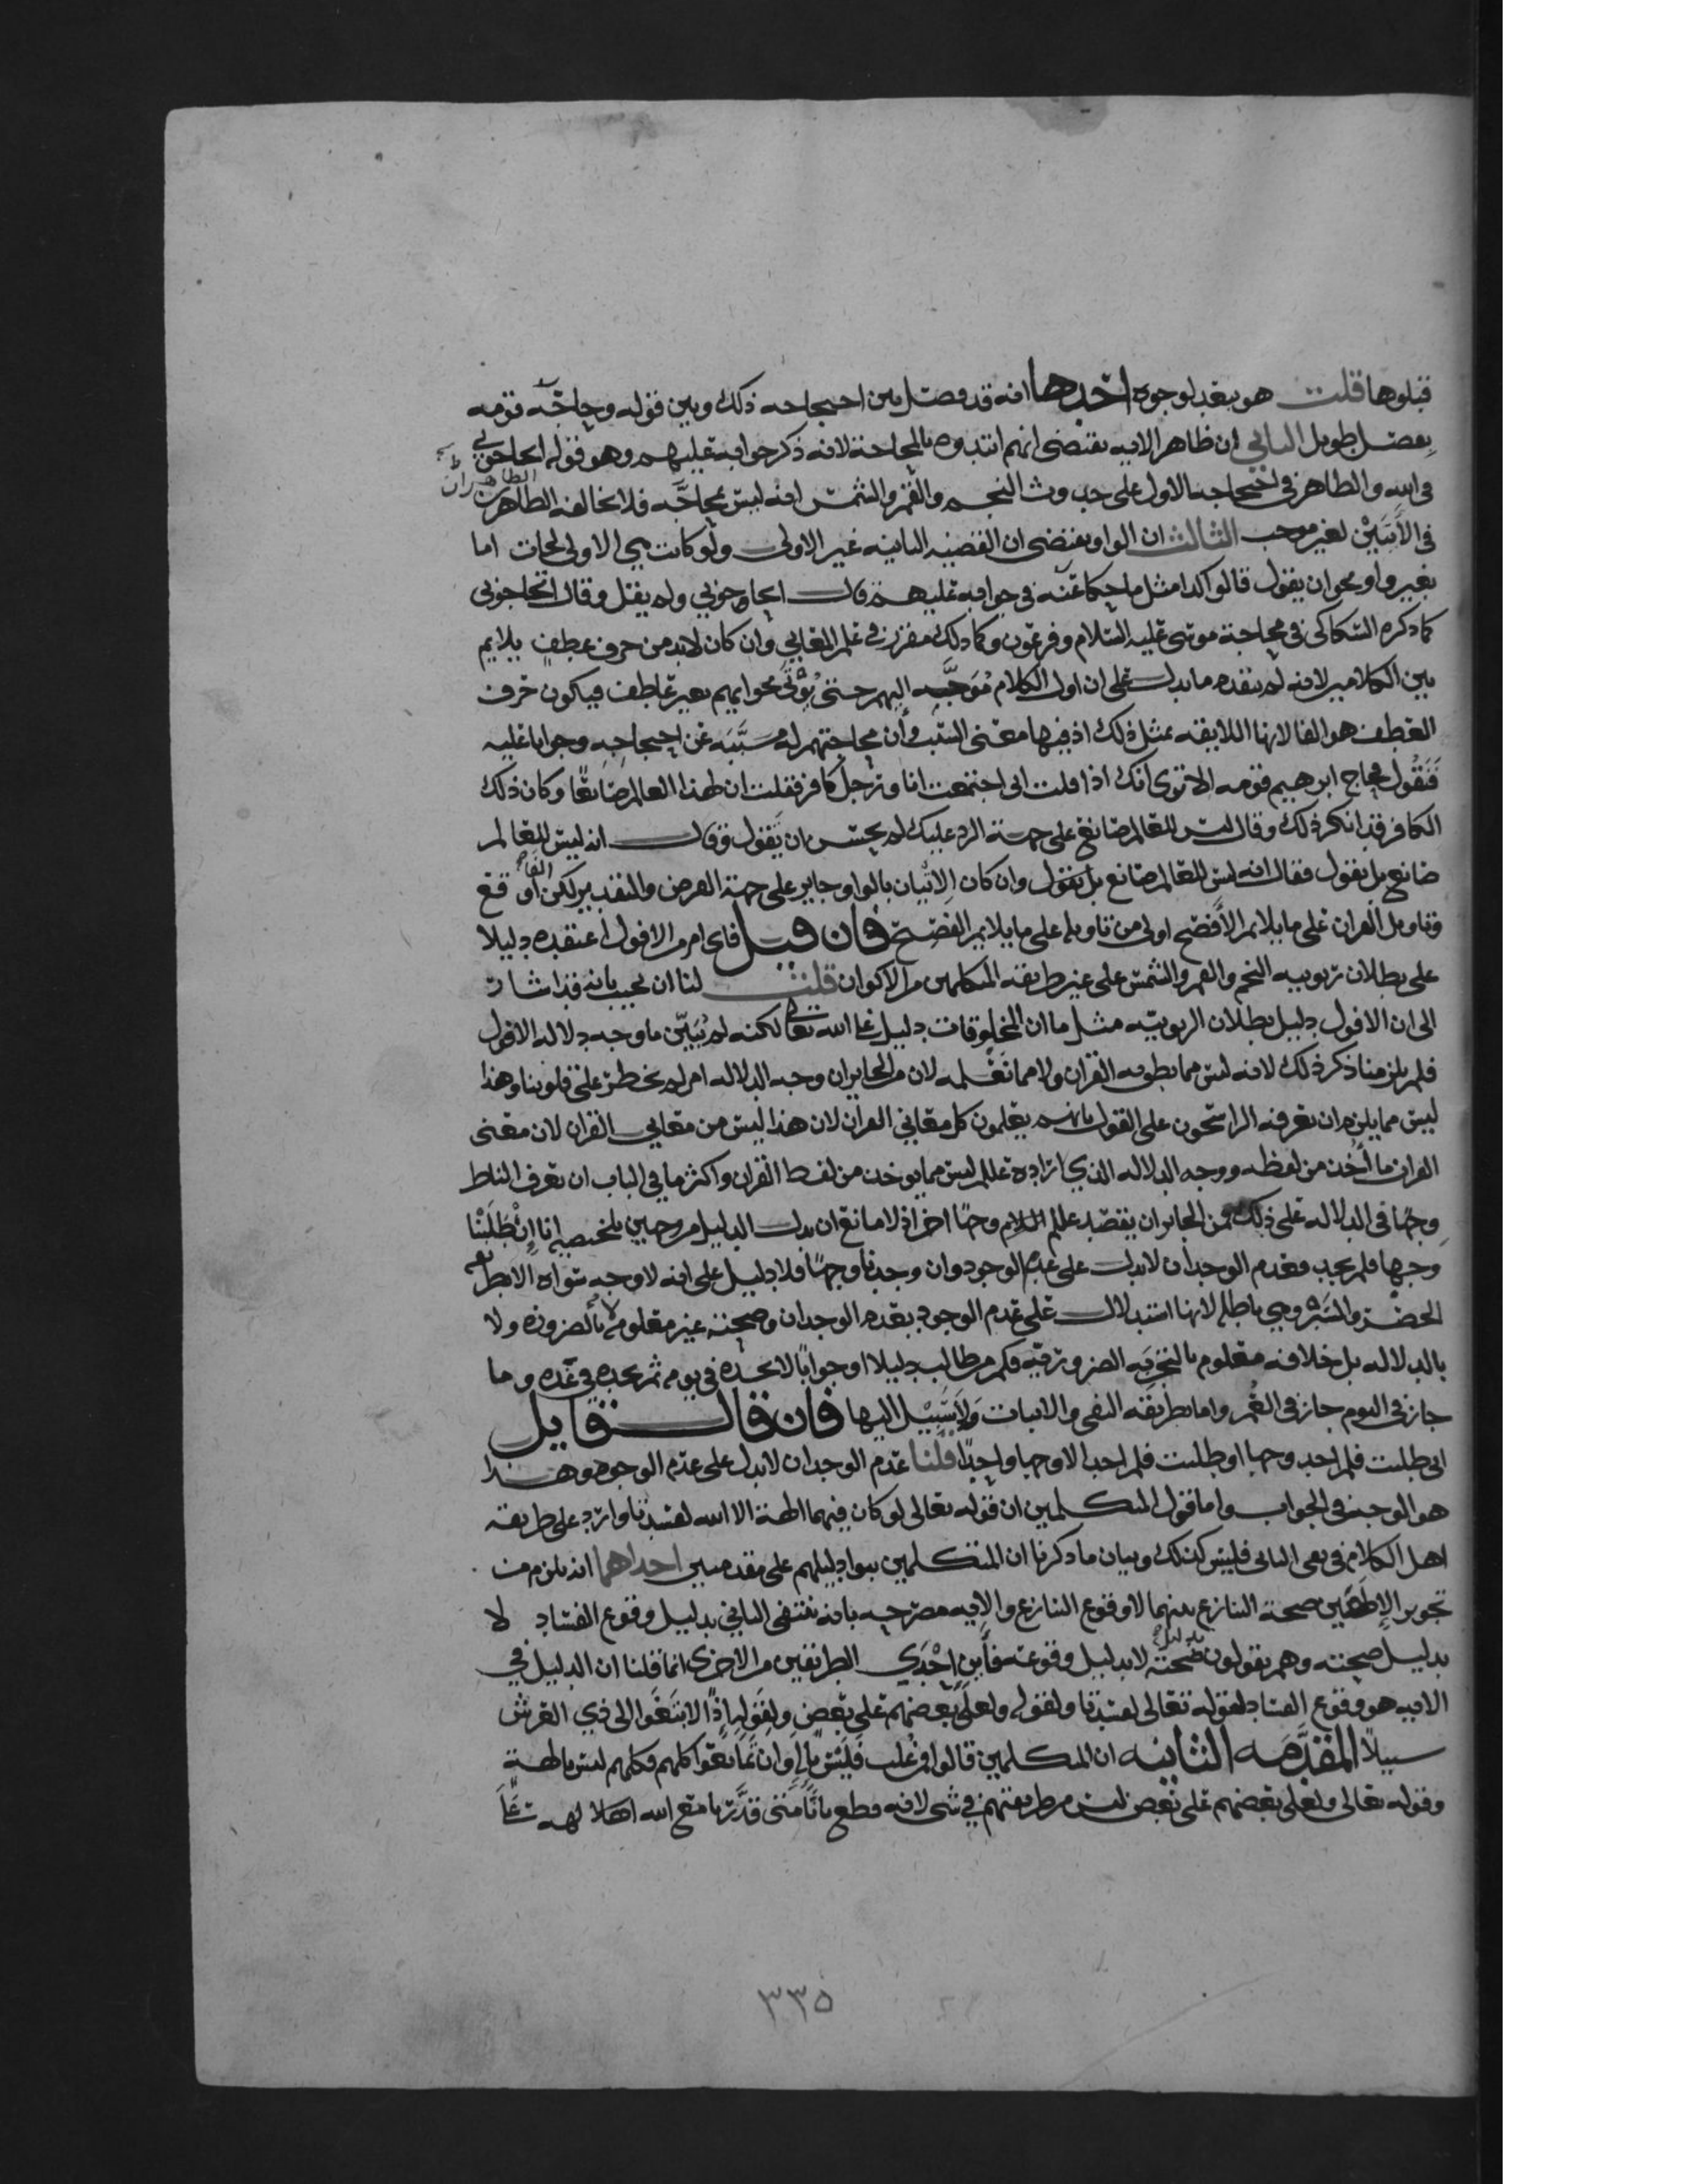 قبلوها قلت هو بعيد لوجوه احدها انه قد فصل بين احتجاجه ذلك وبين قوله وحاجّه قومه
بفصل طويل الثاني ان ظاهر الايه يقتضي انهم ابتدوه بالمحاجة لانه ذكر جوابه عليهم وهو قوله اتحاجوني
في الله والظاهر في احتجاجه الاول على حدوث النجم والقمر والشمس انه ليس بمحاجّه فلا نخالف الظاهر
الظاهران
في الآيتين لغير موجب الثالث ان الواو يقتضي ان القصه الثانيه غير الاولى ولو كانت هي الاولى لجات اما
بغير واو نحو ان يقول قالوا كذا مثل ما حكا عنه في جوابه عليهم قال اتحاجوني ولم يقل وقال اتحاجوني
كما ذكره السكاكي في محاجة موسى عليه السلام وفرعون وكما ذلك مقرر في علم المعاني وان كان لابد من حرف عطف يلايم
بين الكلامين لانه لم يتقدم ما يدل على ان اول الكلام مُوَجَّه اليهم حتى يُؤتى بجوابهم بغير عاطف فيكون حرف
العطف هو الفا لانها اللايقه بمثل ذلك اذ فيها معنى السبب وأن محاجتهم له مسَبَّبَه عن احتجاجه وجوابا عليه
فَنَقُول فحاج ابرهيم قومه الا ترى انك اذا قلت اني اجتمعت انا ورجل كافر فقلت ان لهذا العالم صانعًا وكان ذلك
الكافر قد انكر ذلك وقال ليس للعالم صانع على جهة الرد عليك لم يحسن ان يَقول وقال انه ليس للعالم
صانع بل يقول فقال انه ليس للعالم صانع بل نقول وان كان الاتيان بالواو جايز على جهة الفرض والتقدير لكن الفا اوقع
وتاويل القران على ما يلايم الأفصح اولى من تاويله على ما يلايم الفصيح فان قيل فاي امر من الافول اعتقده دليلا
على بطلان ربوبيه النجم والقمر والشمس على غير طريقه المتكلمين من الاكوان قلت لنا ان نجيب بانه قد اشار
الى ان الافول دليل بطلان الربوبيه مثل ما ان المخلوقات دليل على الله تعالى لكنه لم يُبَيّن ما وجه دلاله الافول
فلم يلزمنا ذكر ذلك لانه ليس مما نطق به القران ولا مما نَعْلمه لان من الجايز ان وجه الدلاله امر لم يخطر على قلوبنا وهذا
ليس مما يلزم ان تعرفه الراسخون على القول بانهم يعلمون كل معاني القران لان هذا ليس من معاني القران لان معنى
القران ما أُخذ من لفظه ووجه الدلاله الذي اراده عللم ليس مما يوخذ من لفظ القران واكثر ما في الباب ان تعرف الناظر
وجهًا في الدلاله على ذلك فمن الجايز ان يقصد عللم السلام وجهًا اخر اذ لا مانع ان يدل الدليل من وجهين تلخيصه انا ان طَلَبْنا
وجهها فلم نجد فعدم الوجدان لا يدل على عدم الوجود وان وجدنا وجهًا فلا دليل على انه لا وجه سواه الا بطريقه
الحصر والسَبْر وهي باطله لانها استدلال على عدم الوجود بعدم الوجدان وصحته غير معلومه لا بالضروره ولا
بالدلاله بل خلافه معلوم بالتجربَه الضروريه فكم من طالب دليلا او جوابًا لا يجده في يومه ثم يجده في غده وما
جاز في اليوم جاز في العُمر واما بطريقه النفي والاثبات ولاسَبِيْل اليها فان قال قايل
اني طلبت فلم اجد وجها او طلبت فلم اجد الا وجها واحدًا قلنا عدم الوجدان لا يدل على عدم الوجود وهذا
هو الوجه في الجواب واما قول المتكلمين ان قوله تعالى لو كان فيهما الهة الا الله لفسدتا وارد على طريقه
اهل الكلام في نفي الثاني فليس كذلك وبيان ما ذكرنا ان المتكلمين بنوا دليلهم على مقدمتين احداهما انه يلزم من
تجويز الإلهين صحة التنازع بينهما لا وقوع التنازع والايه مصرحه بانه ينتفي الثاني بدليل وقوع الفساد لا
بدليل صحته وهم يقولون بدليل صحته لا بدليل وقوعه فأين احْدَي الطريقين من الاخرى انما قلنا ان الدليل في
الايه هو وقوع الفساد لقوله تعالى لفسدتا ولقوله ولعلى بعضهم على بعض ولقَوله اذًا لابتَغَوا الى ذي العرش
سبيلًا المقدّمه الثانيه ان المتكلمين قالوا من غُلب فليس باله وان تمانعوا كلهم فكلهم ليس بالهة
وقوله تعالى ولعلى بعضهم على بعض ليس من طريقتهم في شي لانه قطع بانَّا متى قدَّرنا مع الله اهلا لهم
٣٣٥